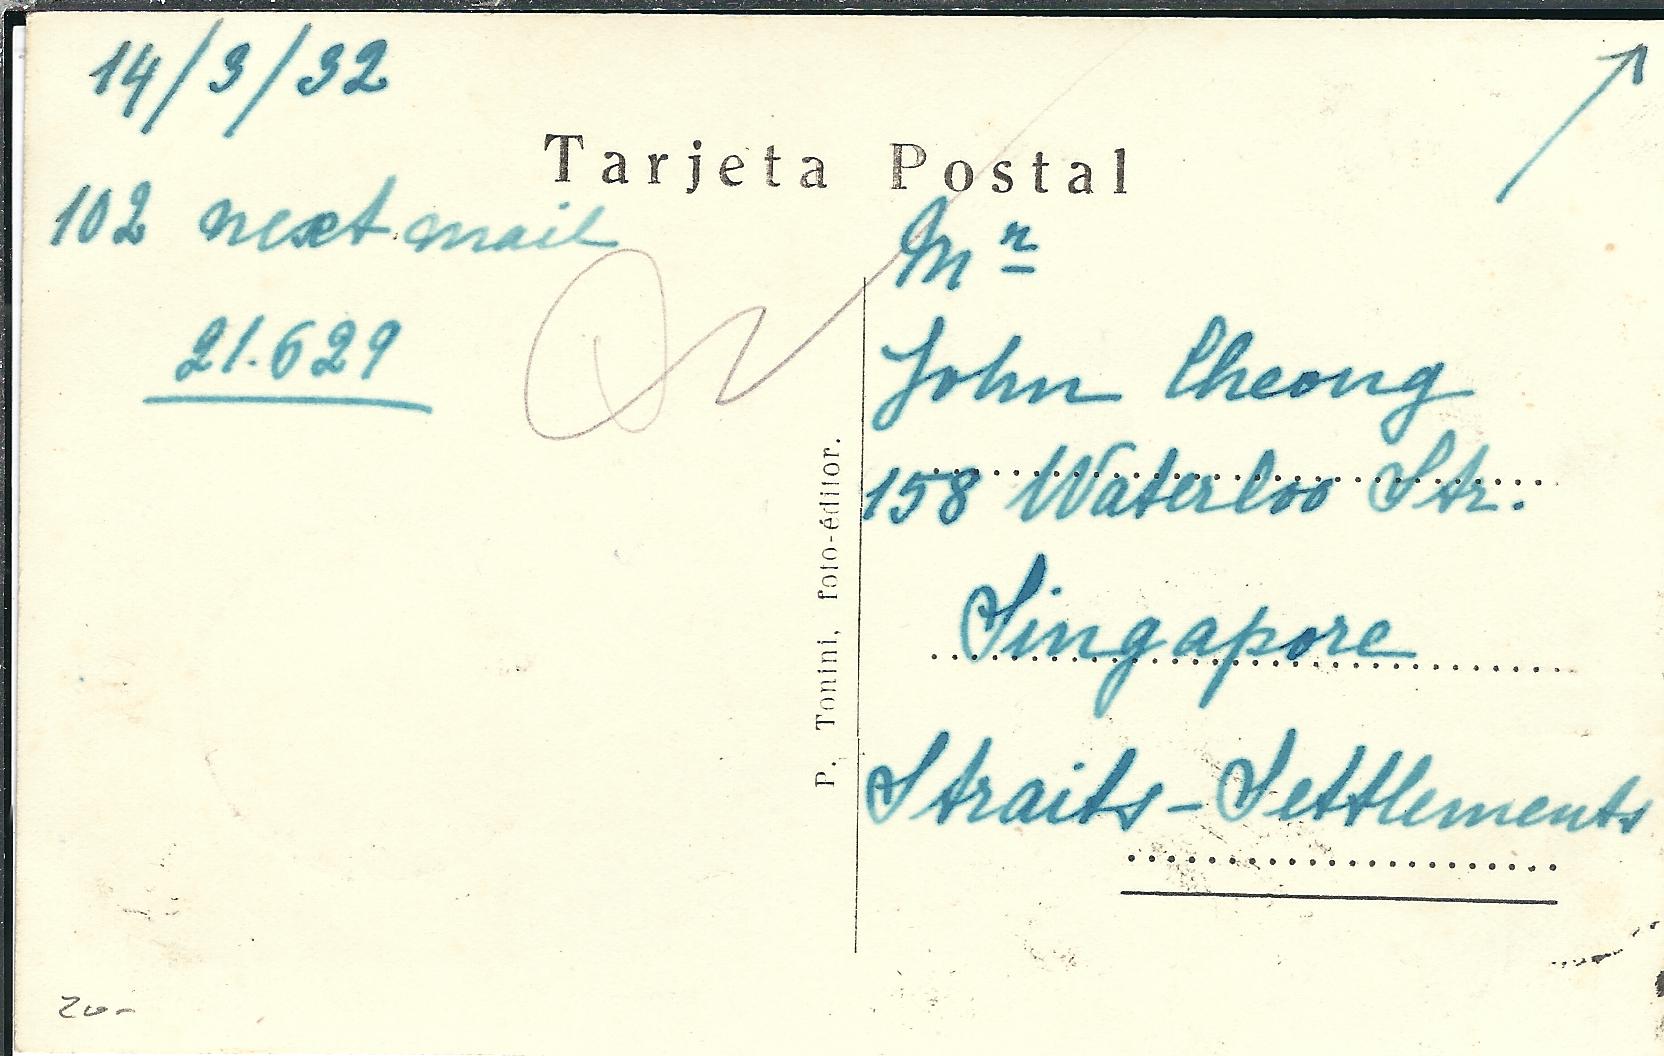 14/3/32
Tarjeta Postal
102 next mail
21.629
Mr
John Cheong
158 Waterloo Str.
Singapore
Straits-Settlements
P. Tonini, foto-éditor.